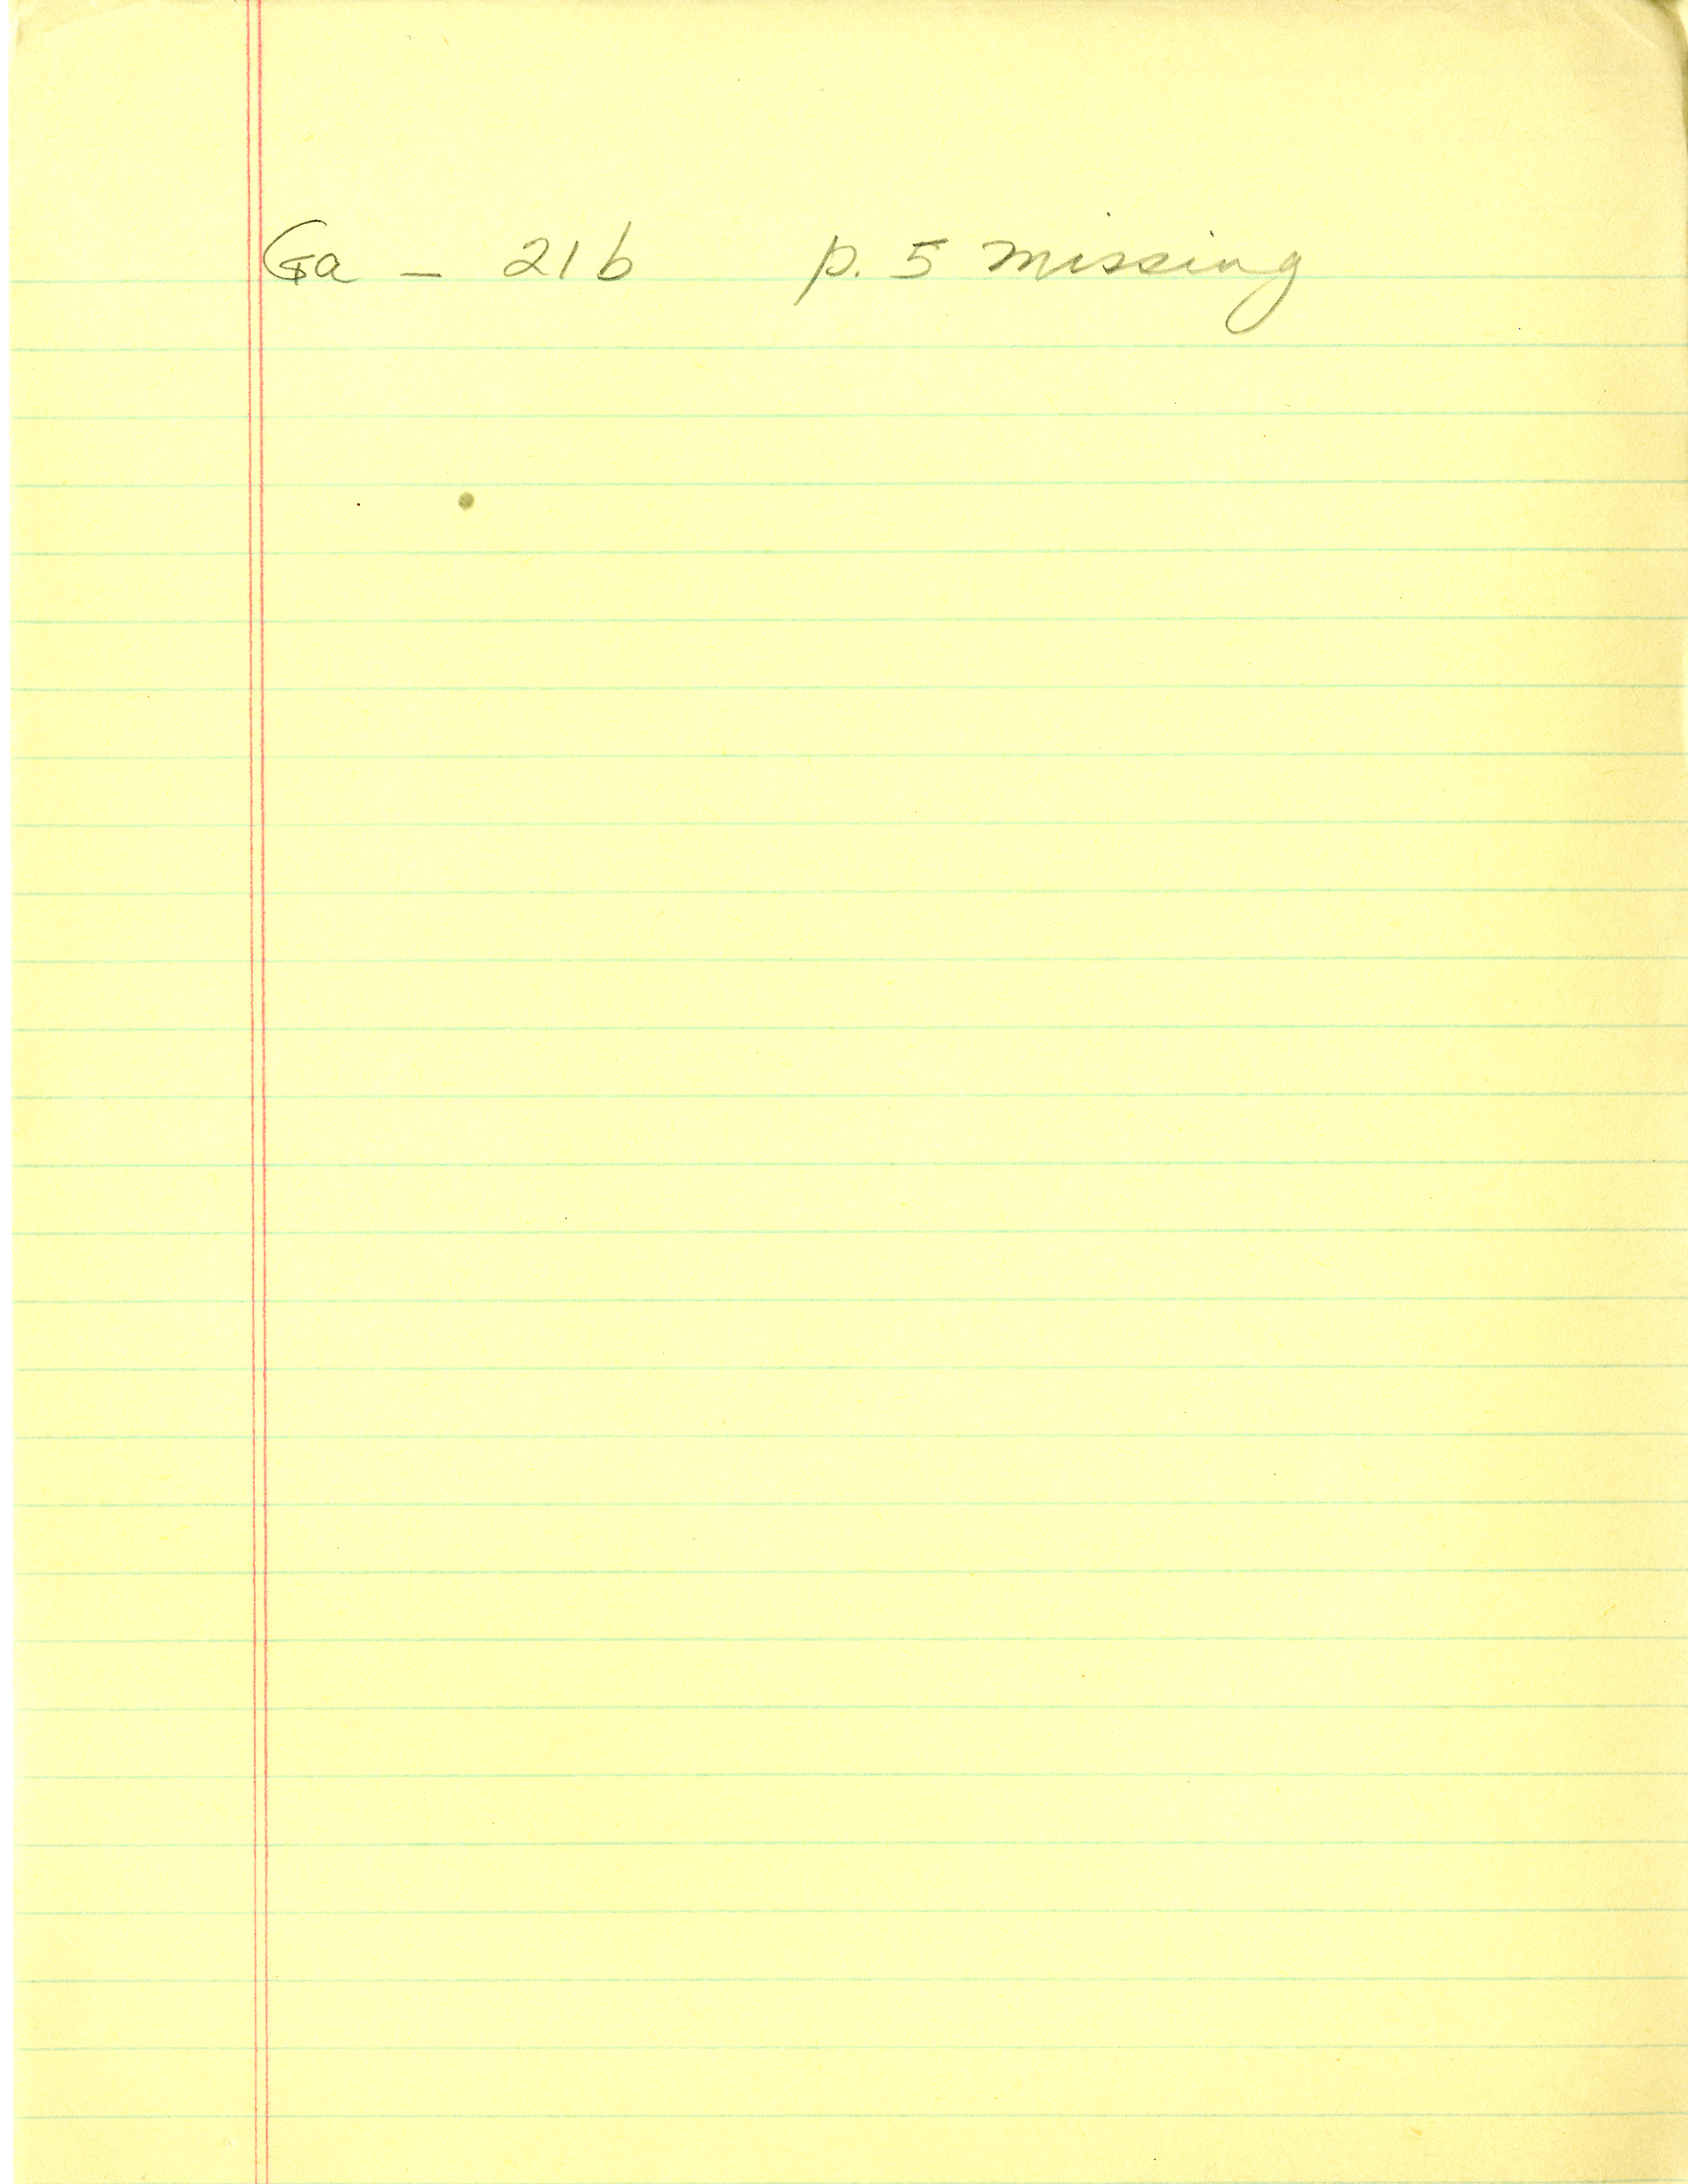 Ga - 21b p. 5 missing